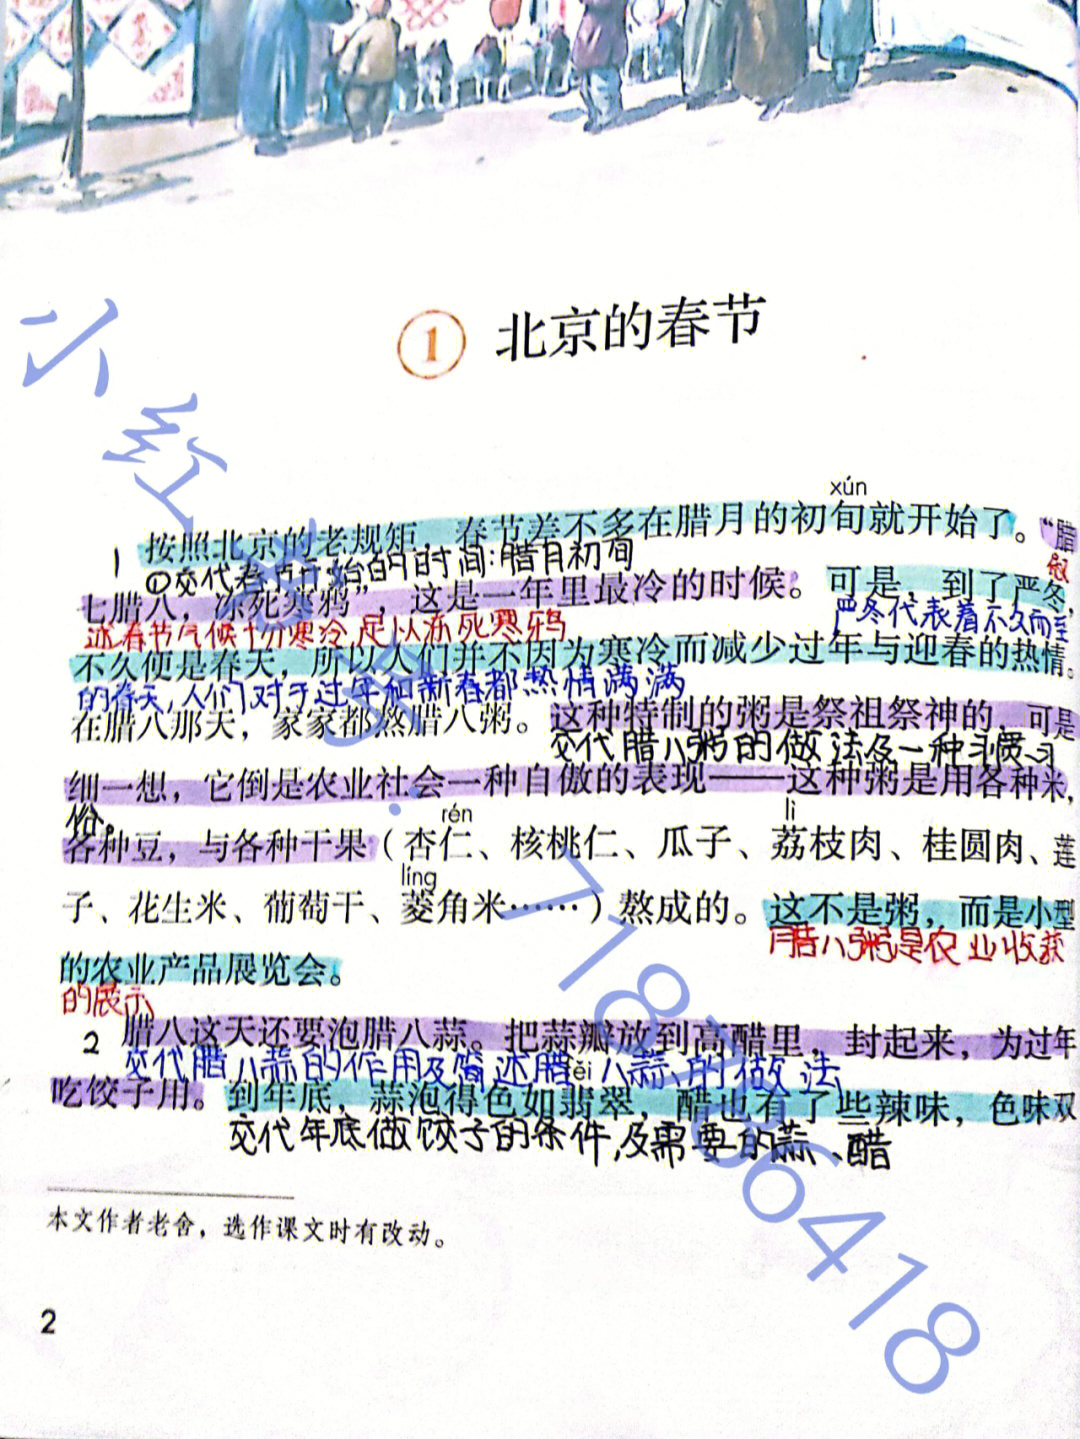 1 北京的春节
xún
1 按照北京的老规矩，春节差不多在腊月的初旬就开始了。“腊
①交代春节开始的时间:腊月初间
叙
七腊八，冻死寒鸦”，这是一年里最冷的时候。可是，到了严冬，
述春节气候十分寒冷足以冻死寒鸦
严冬代表着不久而至
不久便是春天，所以人们并不因为寒冷而减少过年与迎春的热情。
的春天,人们对于过年和新春都热情满满
在腊八那天，家家都熬腊八粥。这种特制的粥是祭祖祭神的，可是
交代腊八粥的做法及一种习惯习
细一想，它倒是农业社会一种自傲的表现——这种粥是用各种米，
俗。
rén lì
各种豆，与各种干果（杏仁、核桃仁、瓜子、荔枝肉、桂圆肉、莲
líng
子、花生米、葡萄干、菱角米……）熬成的。这不是粥，而是小型
腊八粥是农业收获
的农业产品展览会。
的展示
2 腊八这天还要泡腊八蒜。把蒜瓣放到高醋里，封起来，为过年
交代腊八蒜的作用及简述腊八蒜的做法
ěi
吃饺子用。到年底，蒜泡得色如翡翠，醋也有了些辣味，色味双
交代年底做饺子的条件,及需要的蒜、醋
本文作者老舍，选作课文时有改动。
2
小红书号: